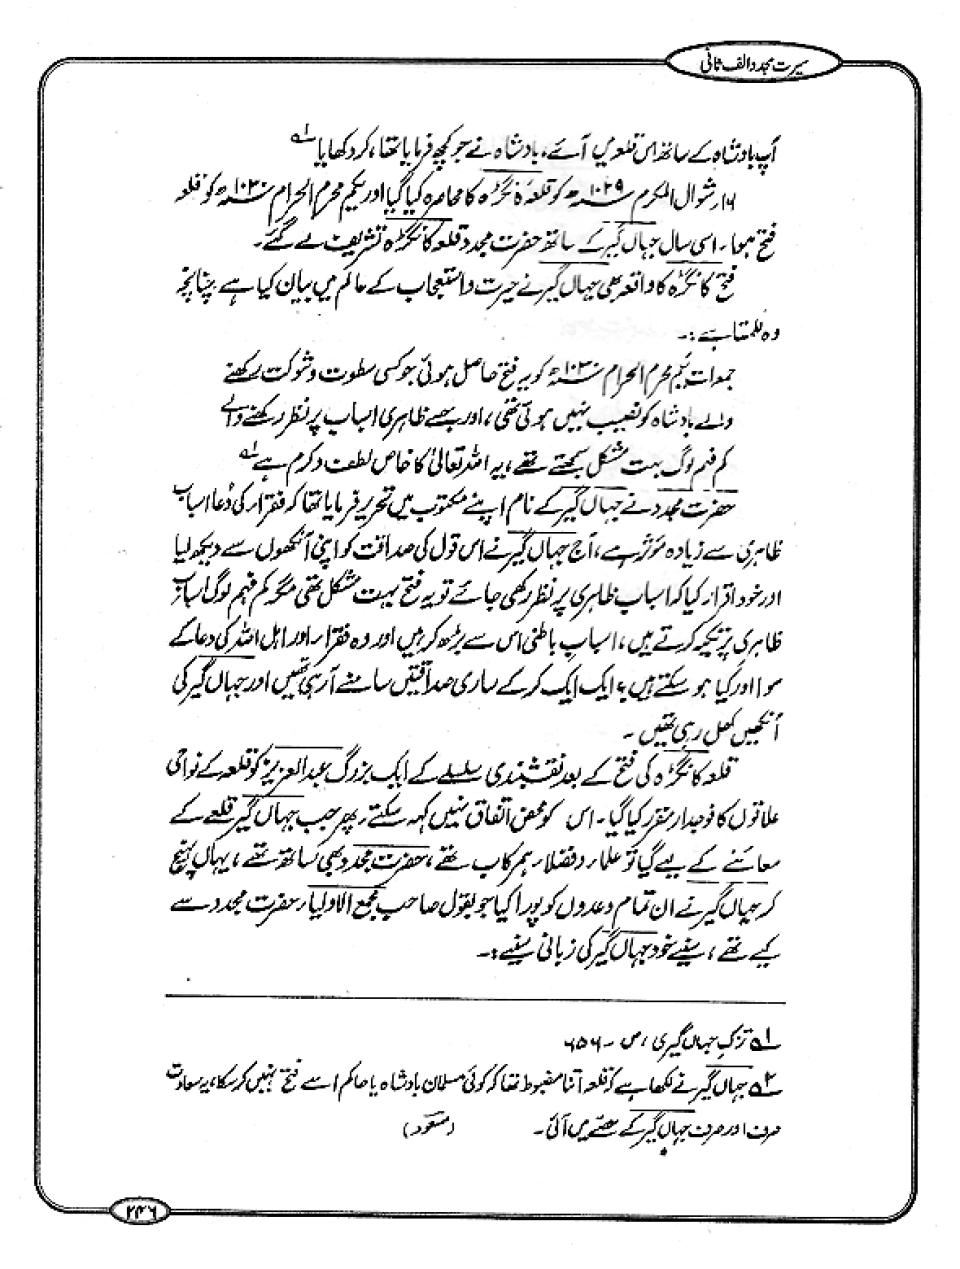 سیرت مجدد الف ثانی
آپ بادشاہ کے ساتھ اس قلعہ میں آئے، بادشاہ نے جو کچھ فرمایا تھا، کر دکھایا ۱؎
۱۶ر شوال المکرم ۱۰۲۹ھ کو قلعہ کانگڑہ کا محاصرہ کیا گیا اور یکم محرم الحرام ۱۰۳۰ھ کو قلعہ
فتح ہوا۔ اسی سال جہاں گیر کے ساتھ حضرت مجدد قلعہ کانگڑہ تشریف لے گئے۔
فتح کانگڑہ کا واقعہ بھی جہاں گیر نے حیرت و استعجاب کے عالم میں بیان کیا ہے چنانچہ
وہ لکھتا ہے :۔
جمعرات یکم محرم الحرام ۱۰۳۰ھ کو یہ فتح حاصل ہوئی جو کسی سطوت و شوکت رکھنے
والے بادشاہ کو نصیب نہیں ہوئی تھی، اور جسے ظاہری اسباب پر نظر رکھنے والے
کم فہم لوگ بہت مشکل سمجھتے تھے، یہ اللہ تعالیٰ کا خاص لطف و کرم ہے ۲؎
حضرت مجدد نے جہاں گیر کے نام اپنے مکتوب میں تحریر فرمایا تھا کہ فقراء کی دُعا اسباب
ظاہری سے زیادہ مؤثر ہے، آج جہاں گیر نے اس قول کی صداقت کو اپنی آنکھوں سے دیکھ لیا
اور خود اقرار کیا کہ اسباب ظاہری پر نظر رکھی جائے تو یہ فتح بہت مشکل تھی مگر کم فہم لوگ اسباب
ظاہری پر تکیہ کرتے ہیں، اسبابِ باطنی اس سے بڑھ کر ہیں اور وہ فقراء اور اہل اللہ کی دعا کے
سوا اور کیا ہو سکتے ہیں؟ ایک ایک کر کے ساری صداقتیں سامنے آرہی تھیں اور جہاں گیر کی
آنکھیں کھل رہی تھیں ۔
قلعہ کانگڑہ کی فتح کے بعد نقشبندی سلسلے کے ایک بزرگ عبدالعزیز کو قلعہ کے نواحی
علاقوں کا فوجدار مقرر کیا گیا۔ اس کو محض اتفاق نہیں کہہ سکتے، پھر جب جہاں گیر قلعے کے
معائنے کے لیے گیا تو علماء و فضلاء ہمرکاب تھے، حضرت مجدد بھی ساتھ تھے، یہاں پہنچ
کر جہاں گیر نے ان تمام وعدوں کو پورا کیا جو بقول صاحب مجمع الاولیاء حضرت مجدد سے
کیے تھے، سنیے خود جہاں گیر کی زبانی سنیے :۔
۱؎ تزک جہاں گیری، ص ۔ ۶۵۶
۲؎ جہاں گیر نے لکھا ہے کہ قلعہ اتنا مضبوط تھا کہ کوئی مسلمان بادشاہ یا حاکم اسے فتح نہیں کر سکا، یہ سعادت
صرف اور صرف جہاں گیر کے حصّے میں آئی ۔ (مسعود)
۲۴۶